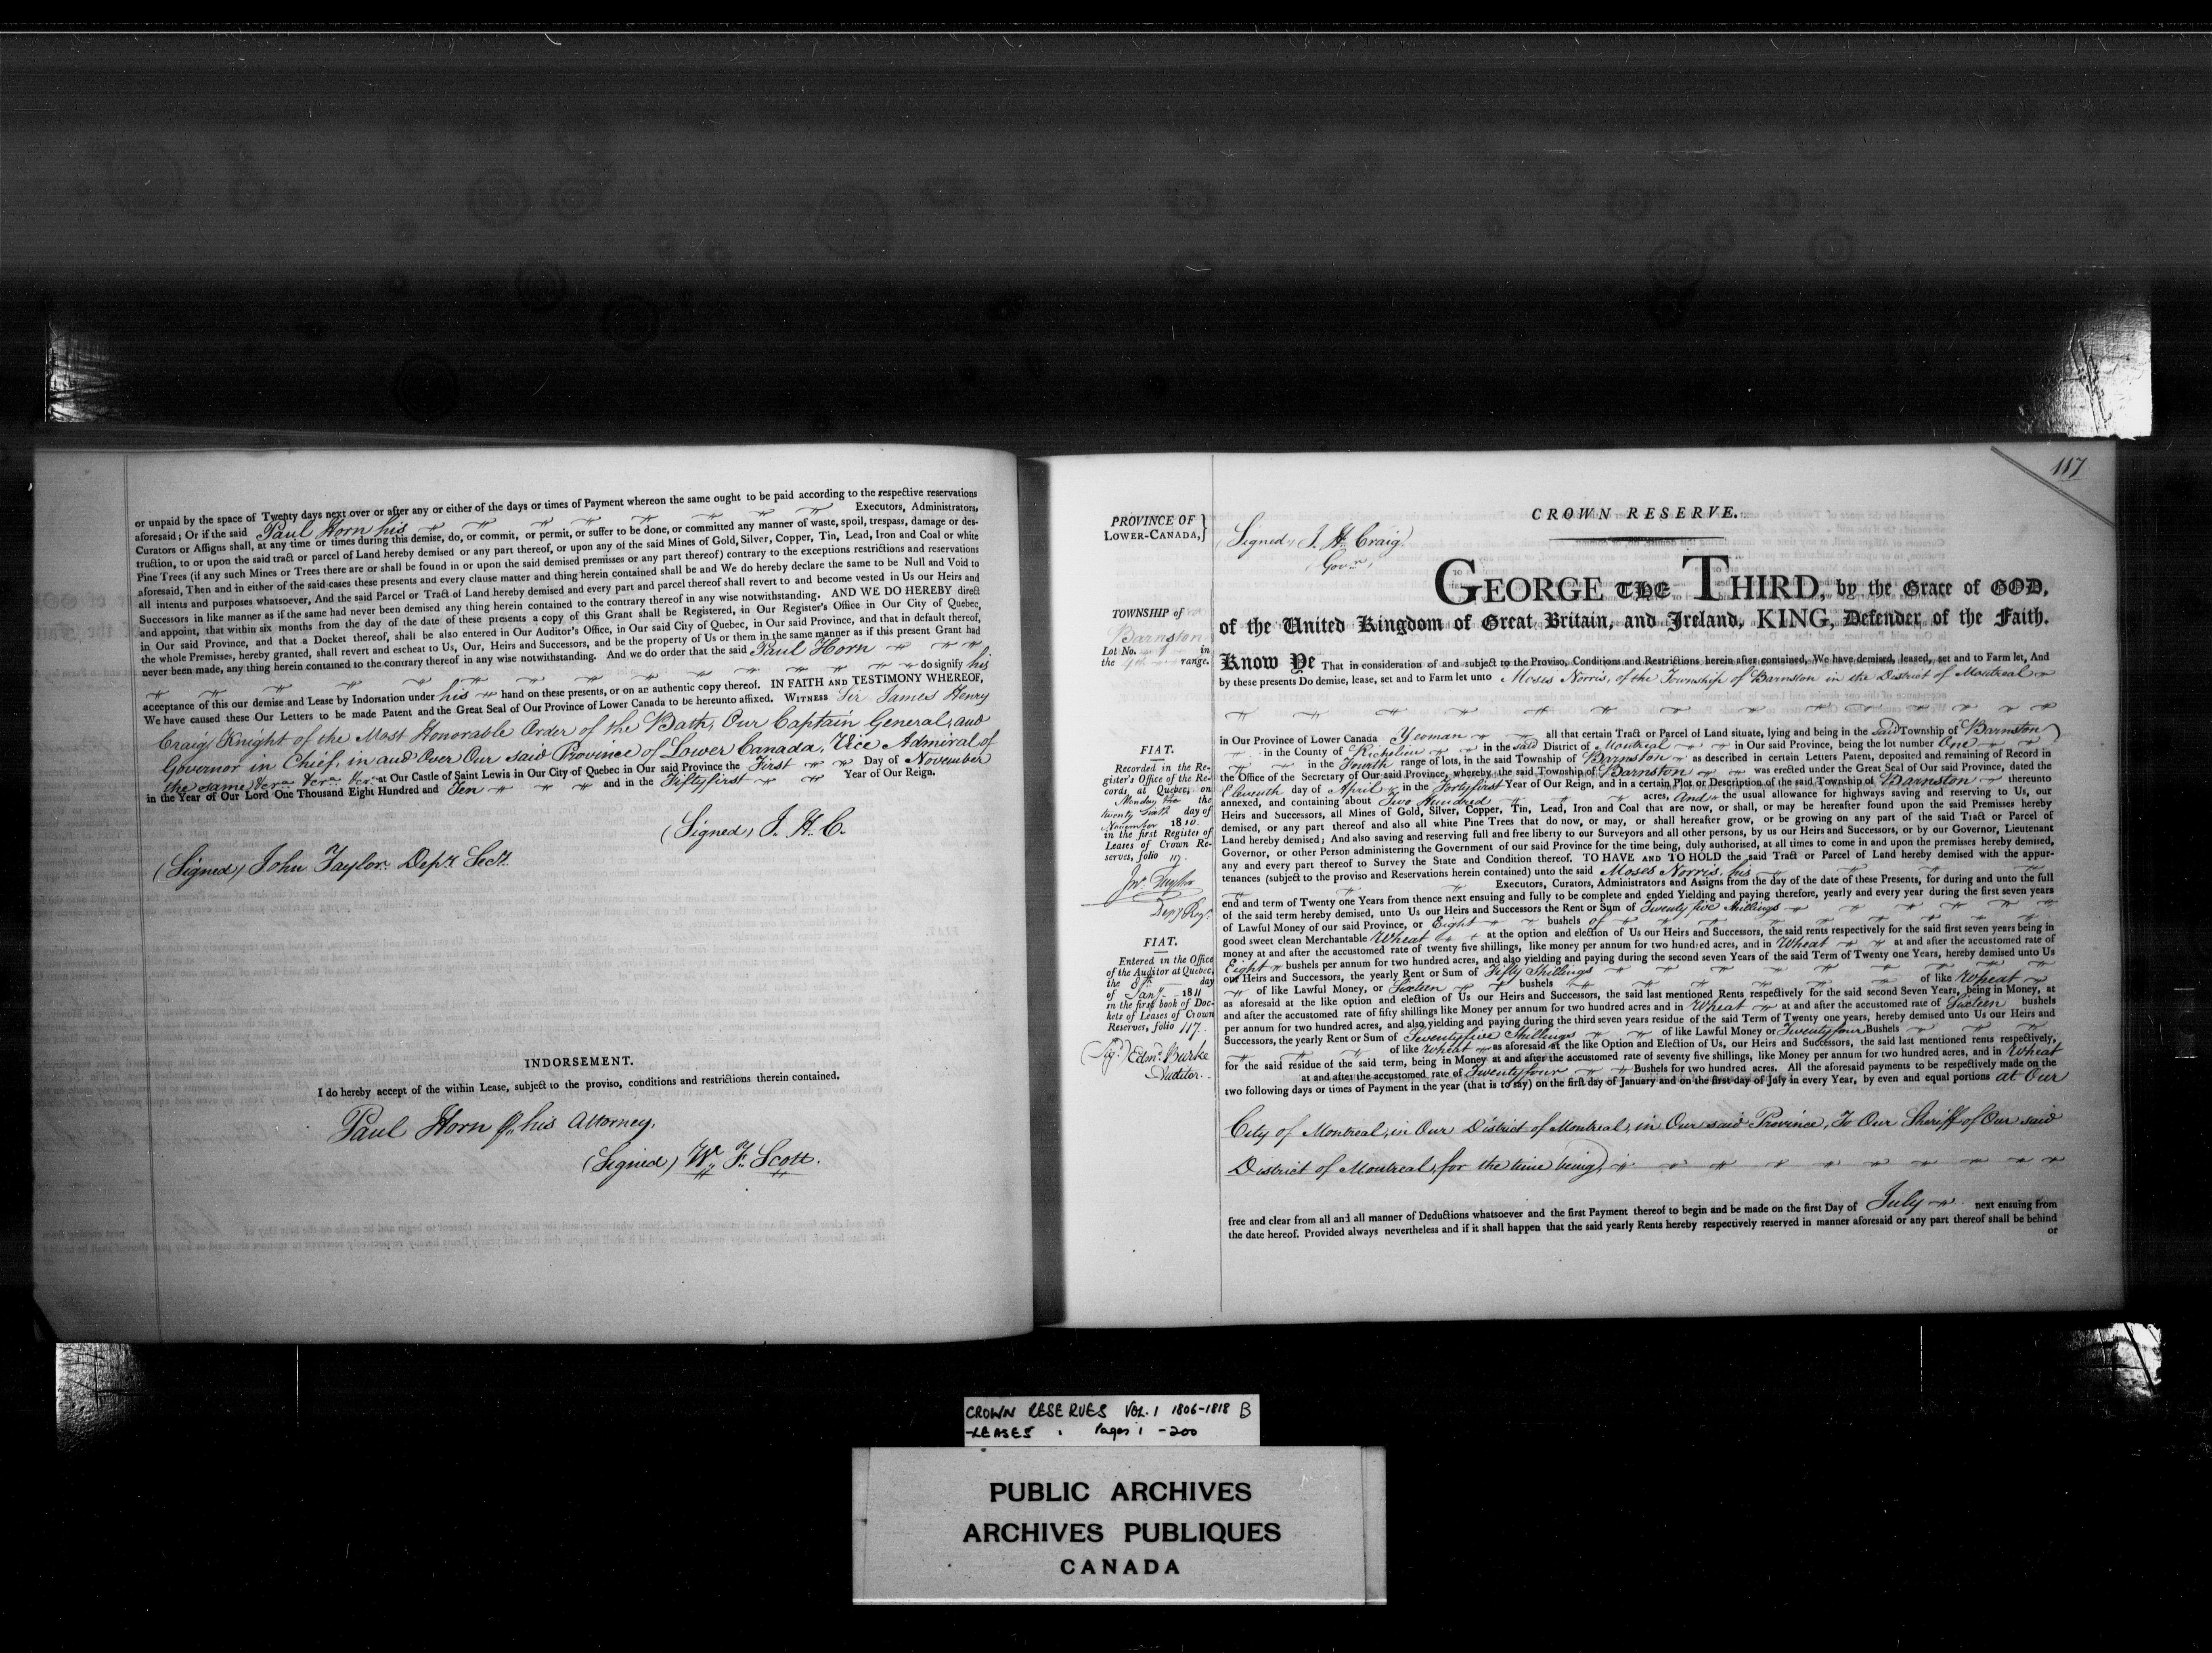 or unpaid by the space of Twenty days next over or after any or either of the days or times of Payment whereon the same ought to be paid according to the respective reservations
aforesaid; Or if the said Paul Horn his Executors, Administrators,
Curators or Assigns shall, at any time or times during this demise, do, or commit, or permit, or suffer to be done, or committed any manner of waste, spoil, trespass, damage or des-
truction, to or upon the said tract or parcel of Land hereby demised or any part thereof, or upon any of the said Mines of Gold, Silver, Copper, Tin, Lead, Iron and Coal or white
Pine Trees (if any such Mines or Trees there are or shall be found in or upon the said demised premises or any part thereof) contrary to the exceptions restrictions and reservations
aforesaid, Then and in either of the said cases these presents and every clause matter and thing herein contained shall be and We do hereby declare the same to be Null and Void to
all intents and purposes whatsoever, And the said Parcel or Tract of Land hereby demised and every part and parcel thereof shall revert to and become vested in Us our Heirs and
Successors in like manner as if the same had never been demised any thing herein contained to the contrary thereof in any wise notwithstanding. AND WE DO HEREBY direct
and appoint, that within six months from the day of the date of these presents a copy of this Grant shall be Registered, in Our Register's Office in Our City of Quebec,
in Our said Province, and that a Docket thereof, shall be also entered in Our Auditor's Office, in Our said City of Quebec, in Our said Province, and that in default thereof,
the whole Premises, hereby granted, shall revert and escheat to Us, Our, Heirs and Successors, and be the property of Us or them in the same manner as if this present Grant had
never been made, any thing herein contained to the contrary thereof in any wise notwithstanding. And we do order that the said Paul Horn
do signify his
acceptance of this our demise and Lease by Indorsation under his hand on these presents, or on an authentic copy thereof. IN FAITH AND TESTIMONY WHEREOF,
We have caused these Our Letters to be made Patent and the Great Seal of Our Province of Lower Canada to be hereunto affixed. WITNESS Sir James Henry
Craig, Knight of the Most Honorable Order of the Bath, Our Captain General, and
Governor in Chief, in and Over Our said Province of Lower Canada, Vice Admiral of
the same, &c.ra &c.ra &c.ra at Our Castle of Saint Lewis in Our City of Quebec in Our said Province the First Day of November
in the Year of Our Lord One Thousand Eight Hundred and Ten and in the Fiftyfirst Year of Our Reign.
(Signed) J. H. C.
(Signed) John Taylor. Depy. Secy.
INDORSEMENT.
I do hereby accept of the within Lease, subject to the proviso, conditions and restrictions therein contained.
Paul Horn pr. his Attorney.
(Signed) Wm. F. Scott.
117
CROWN RESERVE.
PROVINCE OF
LOWER-CANADA, }
(Signed) J. H. Craig
Govr.
GEORGE THE THIRD, by the Grace of GOD,
of the United Kingdom of Great Britain, and Ireland, KING, Defender of the Faith.
TOWNSHIP of
Barnston
Lot No. 1 in
the 4th range.
Know Ye That in consideration of and subject to the Proviso, Conditions and Restrictions herein after contained, We have demised, leased, set and to Farm let, And
by these presents Do demise, lease, set and to Farm let unto Moses Norris, of the Township of Barnston in the District of Montreal
in Our Province of Lower Canada Yeoman all that certain Tract or Parcel of Land situate, lying and being in the Said Township of Barnston
in the County of Richelieu in the said District of Montreal in Our said Province, being the lot number One
in the Fourth range of lots, in the said Township of Barnston as described in certain Letters Patent, deposited and remaining of Record in
the Office of the Secretary of Our said Province, whereby the said Township of Barnston was erected under the Great Seal of Our said Province, dated the
Eleventh day of April in the Fortyfirst Year of Our Reign, and in a certain Plot or Description of the said Township of Barnston thereunto
annexed, and containing about Two Hundred acres, And the usual allowance for highways saving and reserving to Us, our
Heirs and Successors, all Mines of Gold, Silver, Copper, Tin, Lead, Iron and Coal that are now, or shall, or may be hereafter found upon the said Premises hereby
demised, or any part thereof and also all white Pine Trees that do now, or may, or shall hereafter grow, or be growing on any part of the said Tract or Parcel of
Land hereby demised; And also saving and reserving full and free liberty to our Surveyors and all other persons, by us our Heirs and Successors, or by our Governor, Lieutenant
Governor, or other Person administering the Government of our said Province for the time being, duly authorised, at all times to come in and upon the premises hereby demised,
any and every part thereof to Survey the State and Condition thereof. TO HAVE AND TO HOLD the said Tract or Parcel of Land hereby demised with the appur-
tenances (subject to the proviso and Reservations herein contained) unto the said Moses Norris, his
Executors, Curators, Administrators and Assigns from the day of the date of these Presents, for during and unto the full
end and term of Twenty one Years from thence next ensuing and fully to be complete and ended Yielding and paying therefore, yearly and every year during the first seven years
of the said term hereby demised, unto Us our Heirs and Successors the Rent or Sum of Twenty five Shillings
of Lawful Money of our said Province, or Eight bushels of
good sweet clean Merchantable Wheat at the option and election of Us our Heirs and Successors, the said rents respectively for the said first seven years being in
money at and after the accustomed rate of twenty five shillings, like money per annum for two hundred acres, and in Wheat at and after the accustomed rate of
Eight bushels per annum for two hundred acres, and also yielding and paying during the second seven Years of the said Term of Twenty one Years, hereby demised unto Us
our Heirs and Successors, the yearly Rent or Sum of Fifty Shillings
of like Lawful Money, or Sixteen bushels of like Wheat
as aforesaid at the like option and election of Us our Heirs and Successors, the said last mentioned Rents respectively for the said second Seven Years, being in Money, at
and after the accustomed rate of fifty shillings like Money per Annum for two hundred acres and in Wheat at and after the accustomed rate of Sixteen bushels
per annum for two hundred acres, and also yielding and paying during the third seven years residue of the said Term of Twenty one years, hereby demised unto Us our Heirs and
Successors, the yearly Rent or Sum of Seventyfive Shillings of like Lawful Money or Twentyfour Bushels
of like Wheat as aforesaid at the like Option and Election of Us, our Heirs and Successors, the said last mentioned rents respectively,
for the said residue of the said term, being in Money at and after the accustomed rate of seventy five shillings, like Money per annum for two hundred acres, and in Wheat
at and after the accustomed rate of Twentyfour Bushels for two hundred acres. All the aforesaid payments to be respectively made on the
two following days or times of Payment in the year (that is to say) on the first day of January and on the first day of July in every Year, by even and equal portions at Our
City of Montreal, in Our District of Montreal, in Our said Province, To Our Sheriff of Our said
District of Montreal, for the time being,
free and clear from all and all manner of Deductions whatsoever and the first Payment thereof to begin and be made on the first Day of July next ensuing from
the date hereof. Provided always nevertheless and if it shall happen that the said yearly Rents hereby respectively reserved in manner aforesaid or any part thereof shall be behind
or
FIAT.
Recorded in the Re-
gister's Office of the Re-
cords, at Quebec, on
Monday the the
twenty sixth day of
November 1810.
in the first Register of
Leases of Crown Re-
serves, folio 117.
Jno. Taylor
Depy Regr.
FIAT.
Entered in the Office
of the Auditor at Quebec,
the 8th day
of Jany. 1811
in the first book of Doc-
kets of Leases of Crown
Reserves, folio 117.
(Sigd.) Edmd. Burke
Auditor.
CROWN RESERVES VOL. 1 1806-1818 B
-LEASES Pages i - 200
PUBLIC ARCHIVES
ARCHIVES PUBLIQUES
CANADA